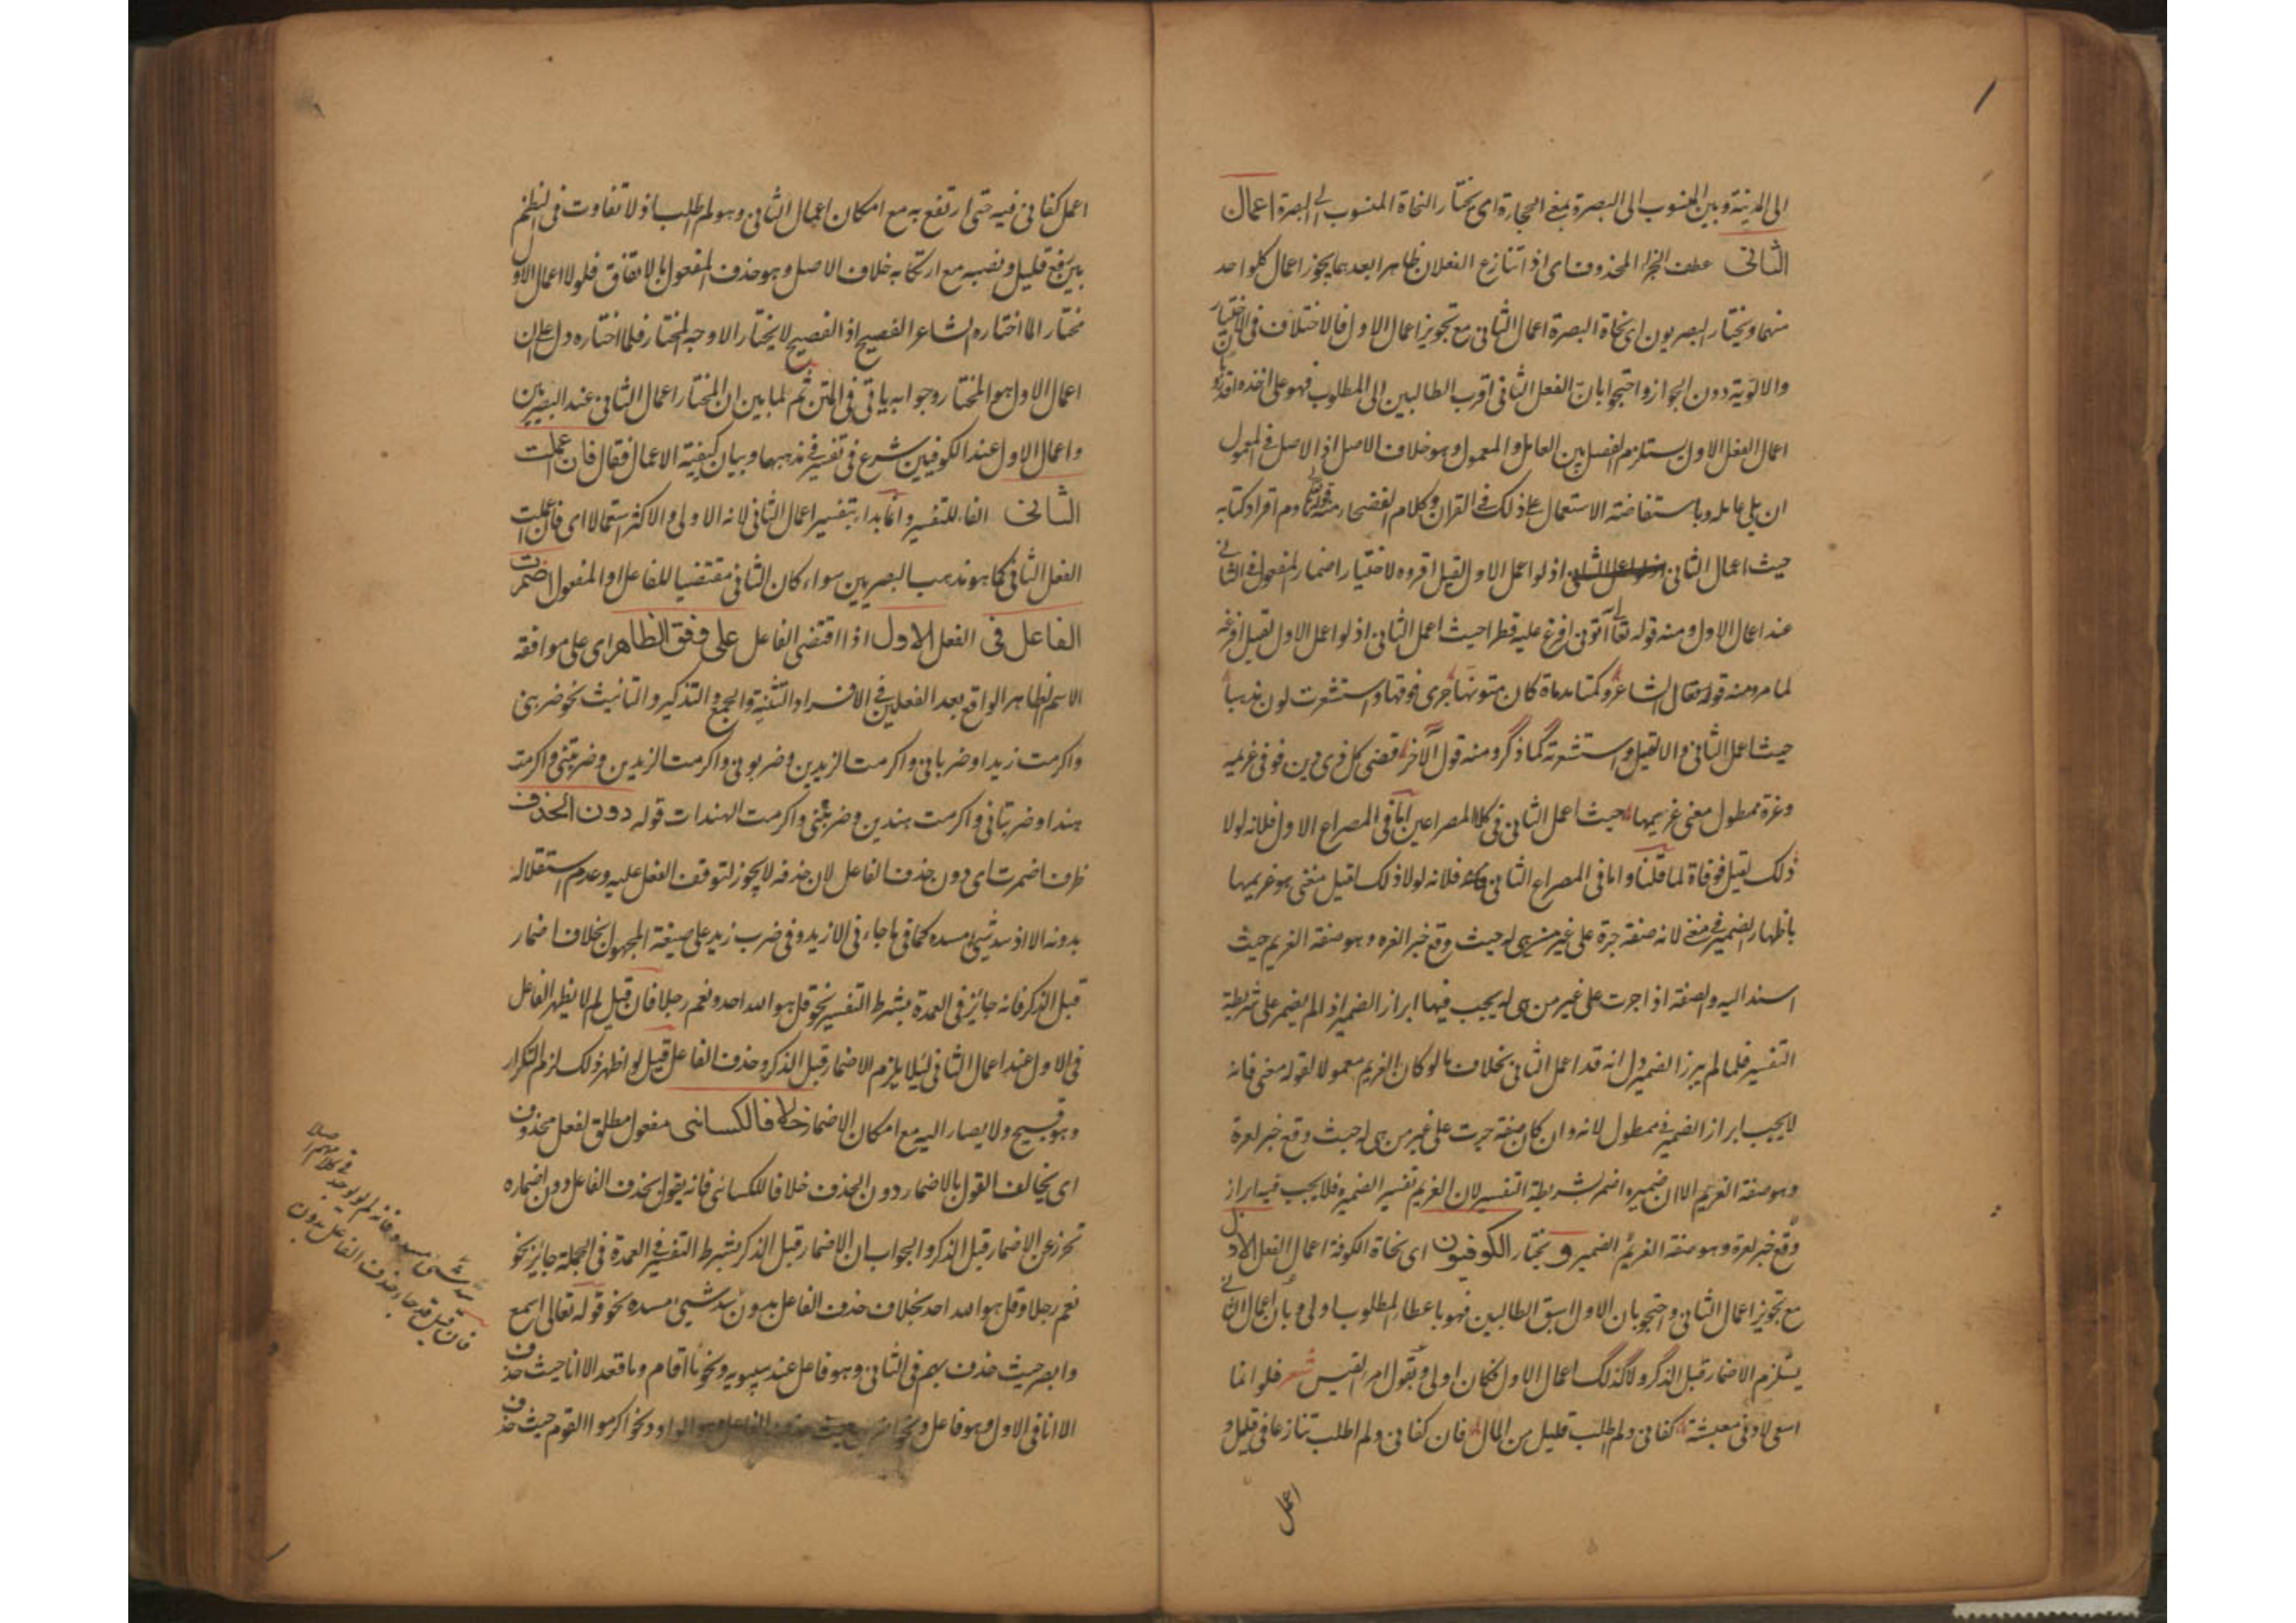 الى المدينة وبين المنسوب الى البصرة بمعنى الحجارة اى يختار النحاة المنسوب الى البصرة اعمال
الثانى عطف الجزاء المحذوف اى اذا تنازع الفعلان ظاهرا بعدهما يجوز اعمال كلواحد
منهما ويختار البصريون اى نحاة البصرة اعمال الثانى مع تجويز اعمال الاول فالاختلاف فى الاختيار
والالوية دون الجواز واحتجوا بان الفعل الثانى اقرب الطالبين الى المطلوب فهو على اخذه اقدر
اعمال الفعل الاول يستلزم الفصل بين العامل والمعمول وهو خلاف الاصل اذ الاصل فى المعمول
ان يلى عامله وباستفاضة الاستعمال على ذلك فى القران وكلام الفصحاء منه هاؤم اقرؤا كتابيه
حيث اعمال الثانى اذ لو اعمل الاول لقيل اقروه لاختيار اضمار المفعول فى الثانى
عند اعمال الاول ومنه قوله تعالى آتونى افرغ عليه قطرا حيث اعمل الثانى اذ لو اعمل الاول لقيل افرغه
لما مر ومنه قوله فقال الشاعر وكمتا مدماة كان متونها جرى فوقها واستشعرت لون مذهب
حيث اعمل الثانى والا لقيل واستشعرته كما ذكر ومنه قول الآخر قضى كل ذى دين فوفى غريمه
وعزة ممطول معنى غريمها حيث اعمل الثانى فى كلا المصراعين اما فى المصراع الاول فلانه لولا
ذلك لقيل فوفاه لما قلنا واما فى المصراع الثانى فلانه لولا ذلك لقيل معنى هو غريمها
باظهار الضمير فى معنى لانه صفة جرة على غير من هى له حيث وقع خبر العزه وهو صفة الغريم حيث
اسند اليه والصفة اذا اجرت على غير من هى له يجب فيها ابراز الضمير اذ الم يضمر على شريطة
التفسير فلما لم يبرز الضمير دل انه قد اعمل الثانى بخلاف ما لو كان الغريم معمولا لقوله معنى فانه
لا يجب ابراز الضمير فى ممطول لانه وان كان صفة جرت على غير من هى له حيث وقع خبر لعزة
وهو صفة الغريم الا ان ضميره اضمر بشريطة التفسير لان الغريم تفسير الضمير فلا يجب فيه ابراز
وقع خبر لعزة وهو صفة الغريم الضمير ويختار الكوفيون اى نحاة الكوفة اعمال الفعل الاول
مع تجويز اعمال الثانى واحتجو بان الاول اسبق الطالبين فهو باعطاء المطلوب اولى وبان اعمال الثانى
يستلزم الاضمار قبل الذكر ولا كذلك اعمال الاول فكان اولى وبقول امرء القيس شعر فلو انما
اسعى لادنى معيشة كفانى ولم اطلب قليل من المال فان كفانى ولم اطلب تنازعا فى قليل و
اعمل
اعمل كفانى فيه حتى ارتفع به مع امكان اعمال الثانى وهو لم اطلب اذ لا تفاوت فى النظم
بين رفع قليل ونصبه مع ارتكابه خلاف الاصل وهو حذف المفعول بالاتفاق فلو لا اعمال الاول
مختار الما اختاره الشاعر الفصيح اذ الفصيح لا يختار الا وجه المختار فلما اختاره دل على ان
اعمال الاول هو المختار وجوابه ياتى فى المتن ثم لما بين ان المختار اعمال الثانى عند البصريين
واعمال الاول عند الكوفيين شرع فى تفسير مذهبهما وبيان كيفية الاعمال فقال فان اعملت
الثانى الفاء للتفسير وانما بداء بتفسير اعمال الثانى لانه الاولى والاكثر استعمالا اى فان اعملت
الفعل الثانى كما هو مذهب البصريين سواء كان الثانى مقتضيا للفاعل او المفعول اضمرت
الفاعل فى الفعل الاول اذا اقتضى الفاعل على وفق الظاهر اى على موافقة
الاسم الظاهر الواقع بعد الفعلين فى الافراد والتثنية والجمع والتذكير والتانيث نحو ضربنى
واكرمت زيدا وضربانى واكرمت الزيدين وضربونى واكرمت الزيدين وضربتنى واكرمت
هندا وضربتانى واكرمت هندين وضربننى واكرمت الهندات قوله دون الحذف
ظرف اضمرت اى دون حذف الفاعل لان حذفه لا يجوز لتوقف الفعل عليه وعدم استقلاله
بدونه الا اذ سد شيئ مسده كما فى ما جاءنى الا زيد وفى ضرب زيد على صيغة المجهول بخلاف اضمار
قبل الذكر فانه جائز فى العمدة بشرط التفسير نحو قل هو الله احد ونعم رجلا فان قيل لم لا يظهر الفاعل
فى الاول عند اعمال الثانى لئلا يلزم الاضمار قبل الذكر وحذف الفاعل قيل لو اظهر ذلك لزم التكرار
وهو قبيح ولا يصار اليه مع امكان الاضمار خلافا للكسائى مفعول مطلق لفعل محذوف
اى يخالف القول بالاضمار دون الحذف خلافا للكسائى فانه يقول بحذف الفاعل دون اضماره
تحرز عن الاضمار قبل الذكر والجواب ان الاضمار قبل الذكر بشرط التفسير فى العمدة فى الجملة جائز نحو
نعم رجلا وقل هو الله احد بخلاف حذف الفاعل بدون سد شيئ مسده نحو قوله تعالى اسمع
وابصر حيث حذف بهم فى الثانى وهو فاعل عند سيبويه ونحو ما قام وما قعد الا انا حيث حذف
الا انا فى الاول وهو فاعل ونحو حيث حذف الفاعل وهو الواو ونحو اكرموا القوم حيث حذف
فان قيل قد جاء حذف الفاعل بدون
سد شئ مسده فانه لم يوجد
فى كلامهم اصلا